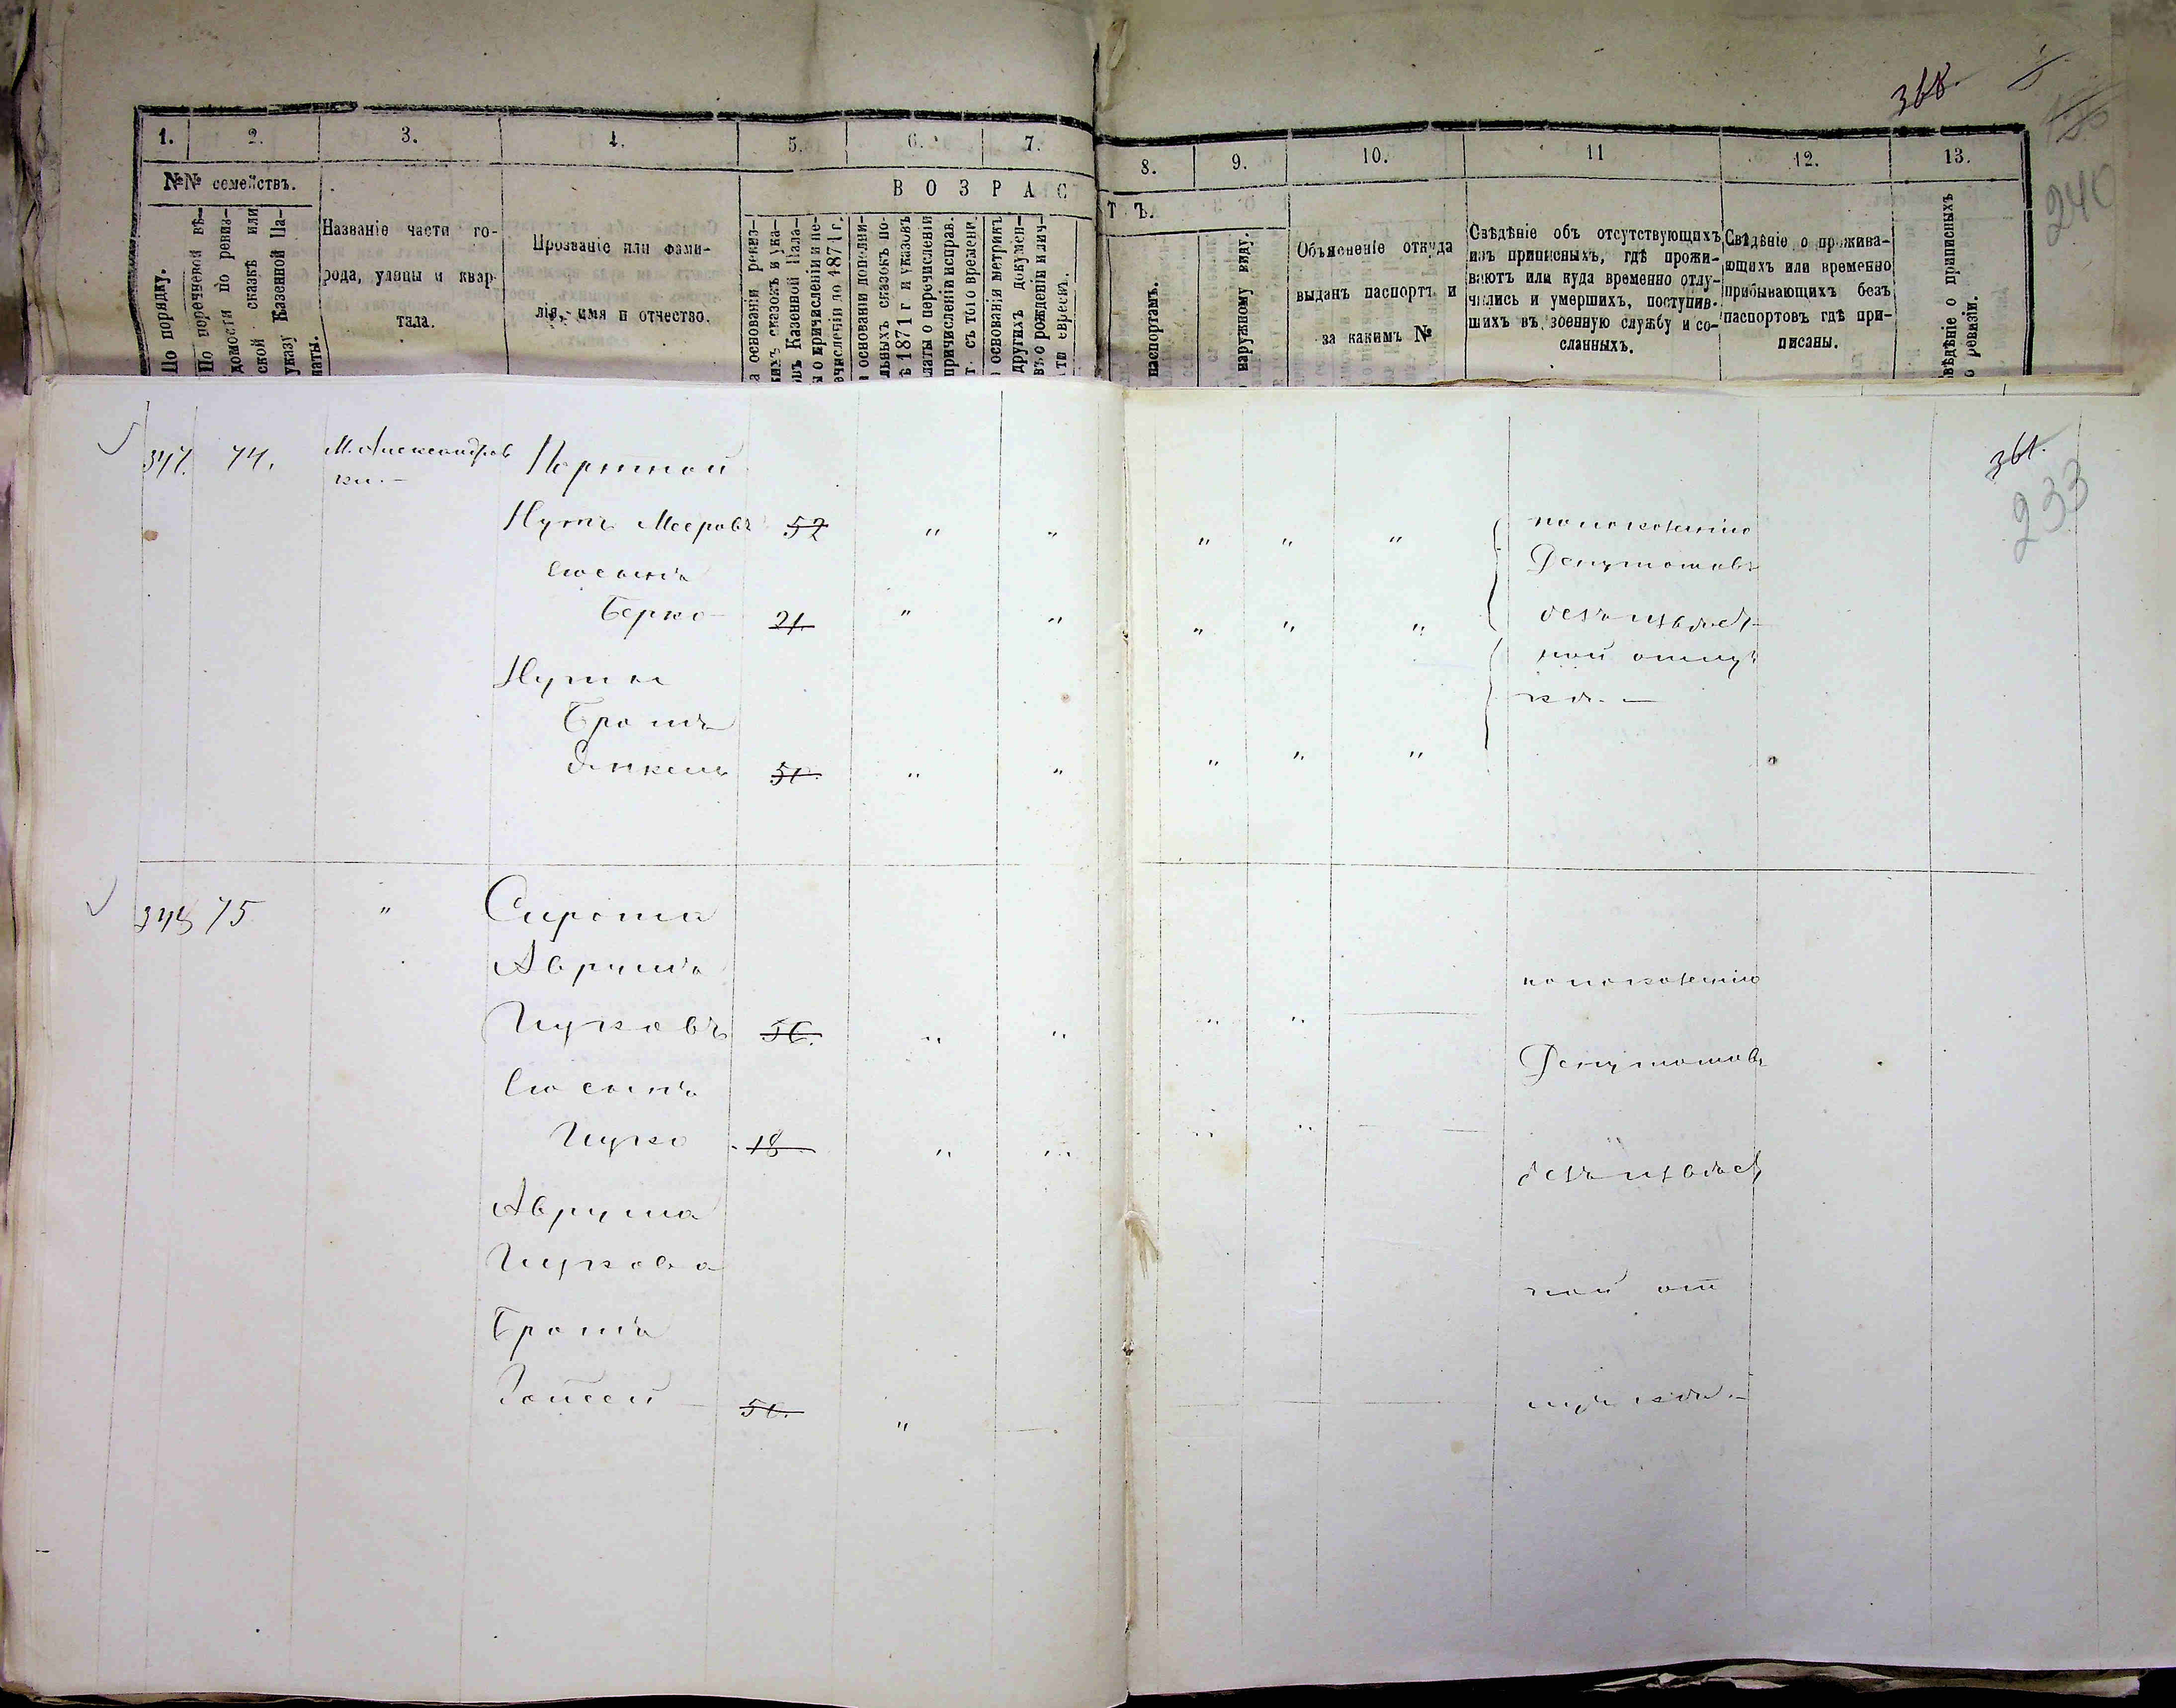 368.
240
1. 2. 3. 4. 5. 6. 7. 8. 9. 10. 11 12. 13.
№№ семействъ.
По порядку.
По перечневой вѣ-
домости по ревиз-
ской сказкѣ или
указу Казенной Па-
латы.
Названіе части го-
рода, улицы и квар-
тала.
Прозваніе или фами-
лія, имя и отчество.
ВОЗРАСТЪ.
а основаніи ревиз-
кихъ сказокъ и ука-
овъ Казенной Пала-
ы о причисленіи и пе-
ечисленіи до 1871 г.
основаніи дополни-
льныхъ сказокъ по-
ѣ 1871 г и указовъ
латы о перечисленіи
причисленіи исправ.
г. съ того времени.
основаніи метрикъ
другихъ докумен-
въ о рожденіи и лич-
ти евреевъ.
паспортамъ.
наружному виду.
Объясненіе откуда
выданъ паспортъ и
за какимъ №
Свѣдѣніе объ отсутствующихъ
изъ приписныхъ, гдѣ прожи-
ваютъ или куда временно отлу-
чились и умершихъ, поступив-
шихъ въ военную службу и со-
сланныхъ.
Свѣдѣніе о прожива-
ющихъ или временно
прибывающихъ безъ
паспортовъ гдѣ при-
писаны.
вѣдѣніе о приписныхъ
о ревизіи.
361.
233
347. 74. М. Александров Портной
ки. —
Нутъ Мееровъ 52 " " " " " по показанію
Его сынъ Депутатовъ
Берко 21. " " " " " безъизвѣст-
Нута ной отлуч
Братъ кѣ. —
Янкель 51. " " " " "
348 75 " Сирота
Аврумъ по показанію
Ицковъ 56. " " " "
Депутатовъ
Его сынъ
Ицко 18 " " " "
безъизвѣст
Аврума
Ицкова
ной от
Братъ
Зайвель 51. " лучкѣ. —